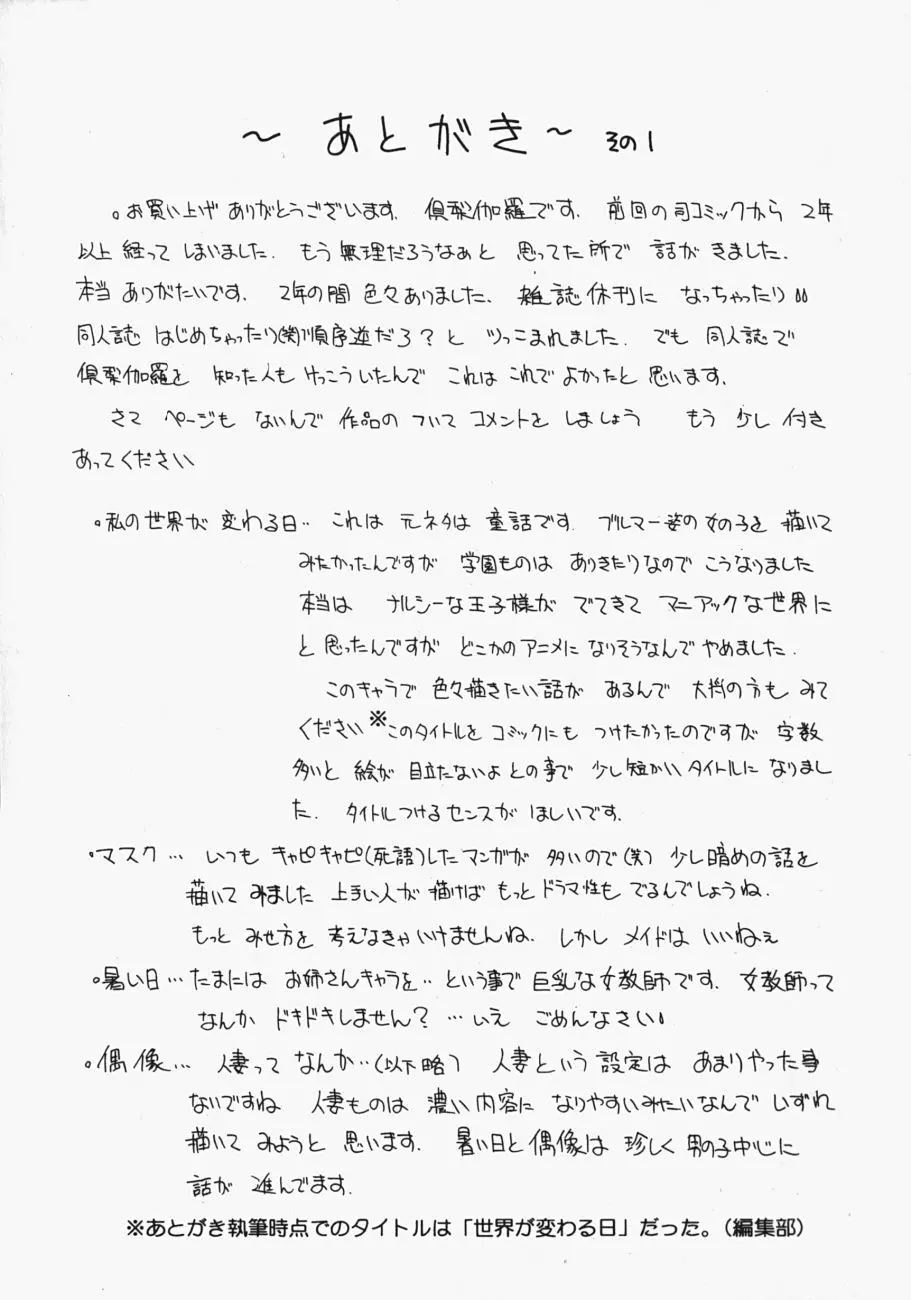 ～ あとがき～ その1
。お買い上げ ありがとうございます. 倶梨伽羅です. 前回の司コミックから 2年
以上 経って しまいました. もう無理だろうなぁと 思ってた所で 話が きました.
本当 ありがたいです. 2年の間 色々ありました、 雑誌休刊に なっちゃったり
同人誌 はじめちゃったり(笑)順序逆だろ?と ツっこまれました. でも 同人誌で
倶梨伽羅を 知った人も けっこういたんで これは これで よかったと 思います.
さて ページも ないんで 作品の ついて コメントを しましょう もう 少し 付き
あってください
。私の世界が 変わる日‥ これは 元ネタは 童話です. ブルマー姿の女の子を 描いて
みたかったんですが 学園ものは ありきたりなので こうなりました
本当は ナルシーな王子様が でてきて マニアックな世界に
と 思ったんですが どこかのアニメに なりそうなんで やめました.
このキャラで 色々描きたい話が あるんで 大判の方も みて
ください※このタイトルを コミックにも つけたかったのですが 字数
多いと 絵が 目立たないよ との事で 少し短かいタイトルに なりまし
た. タイトルつけるセンスが ほしいです.
・マスク… いつも キャピキャピ(死語)したマンガが 多いので(笑) 少し暗めの話を
描いて みました 上手い人が 描けば もっとドラマ性も でるんでしょうね.
もっと みせ方を 考えなきゃ いけませんね. しかし メイドは いいねぇ
。暑い日… たまには お姉さんキャラを‥ という事で 巨乳な女教師です. 女教師って
なんか ドキドキしません? …いえ ごめんなさい!
。偶像… 人妻って なんか‥(以下略) 人妻という設定は あまりやった事
ないですね 人妻ものは 濃い内容に なりやすいみたいなんで いずれ
描いて みようと 思います. 暑い日と偶像は 珍しく 男の子中心に
話が 進んでます.
※あとがき執筆時点でのタイトルは「世界が変わる日」だった。（編集部）